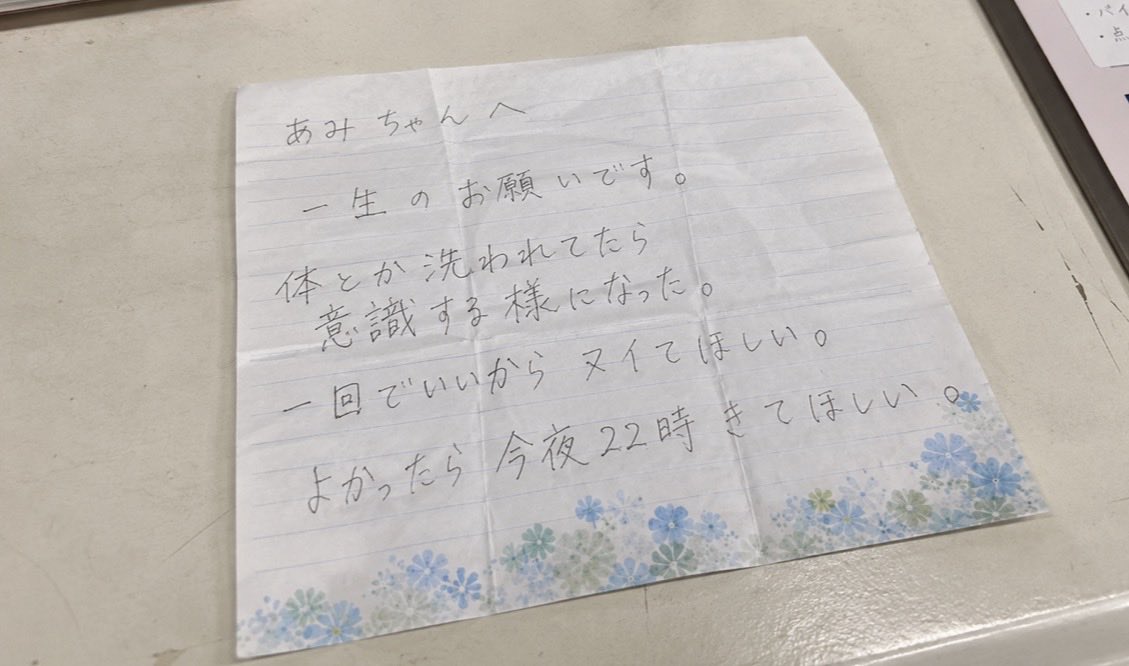 あみちゃんへ
一生のお願いです。
体とか洗われてたら
意識する様になった。
一回でいいからヌイてほしい。
よかったら今夜22時きてほしい。
・パイ
・点